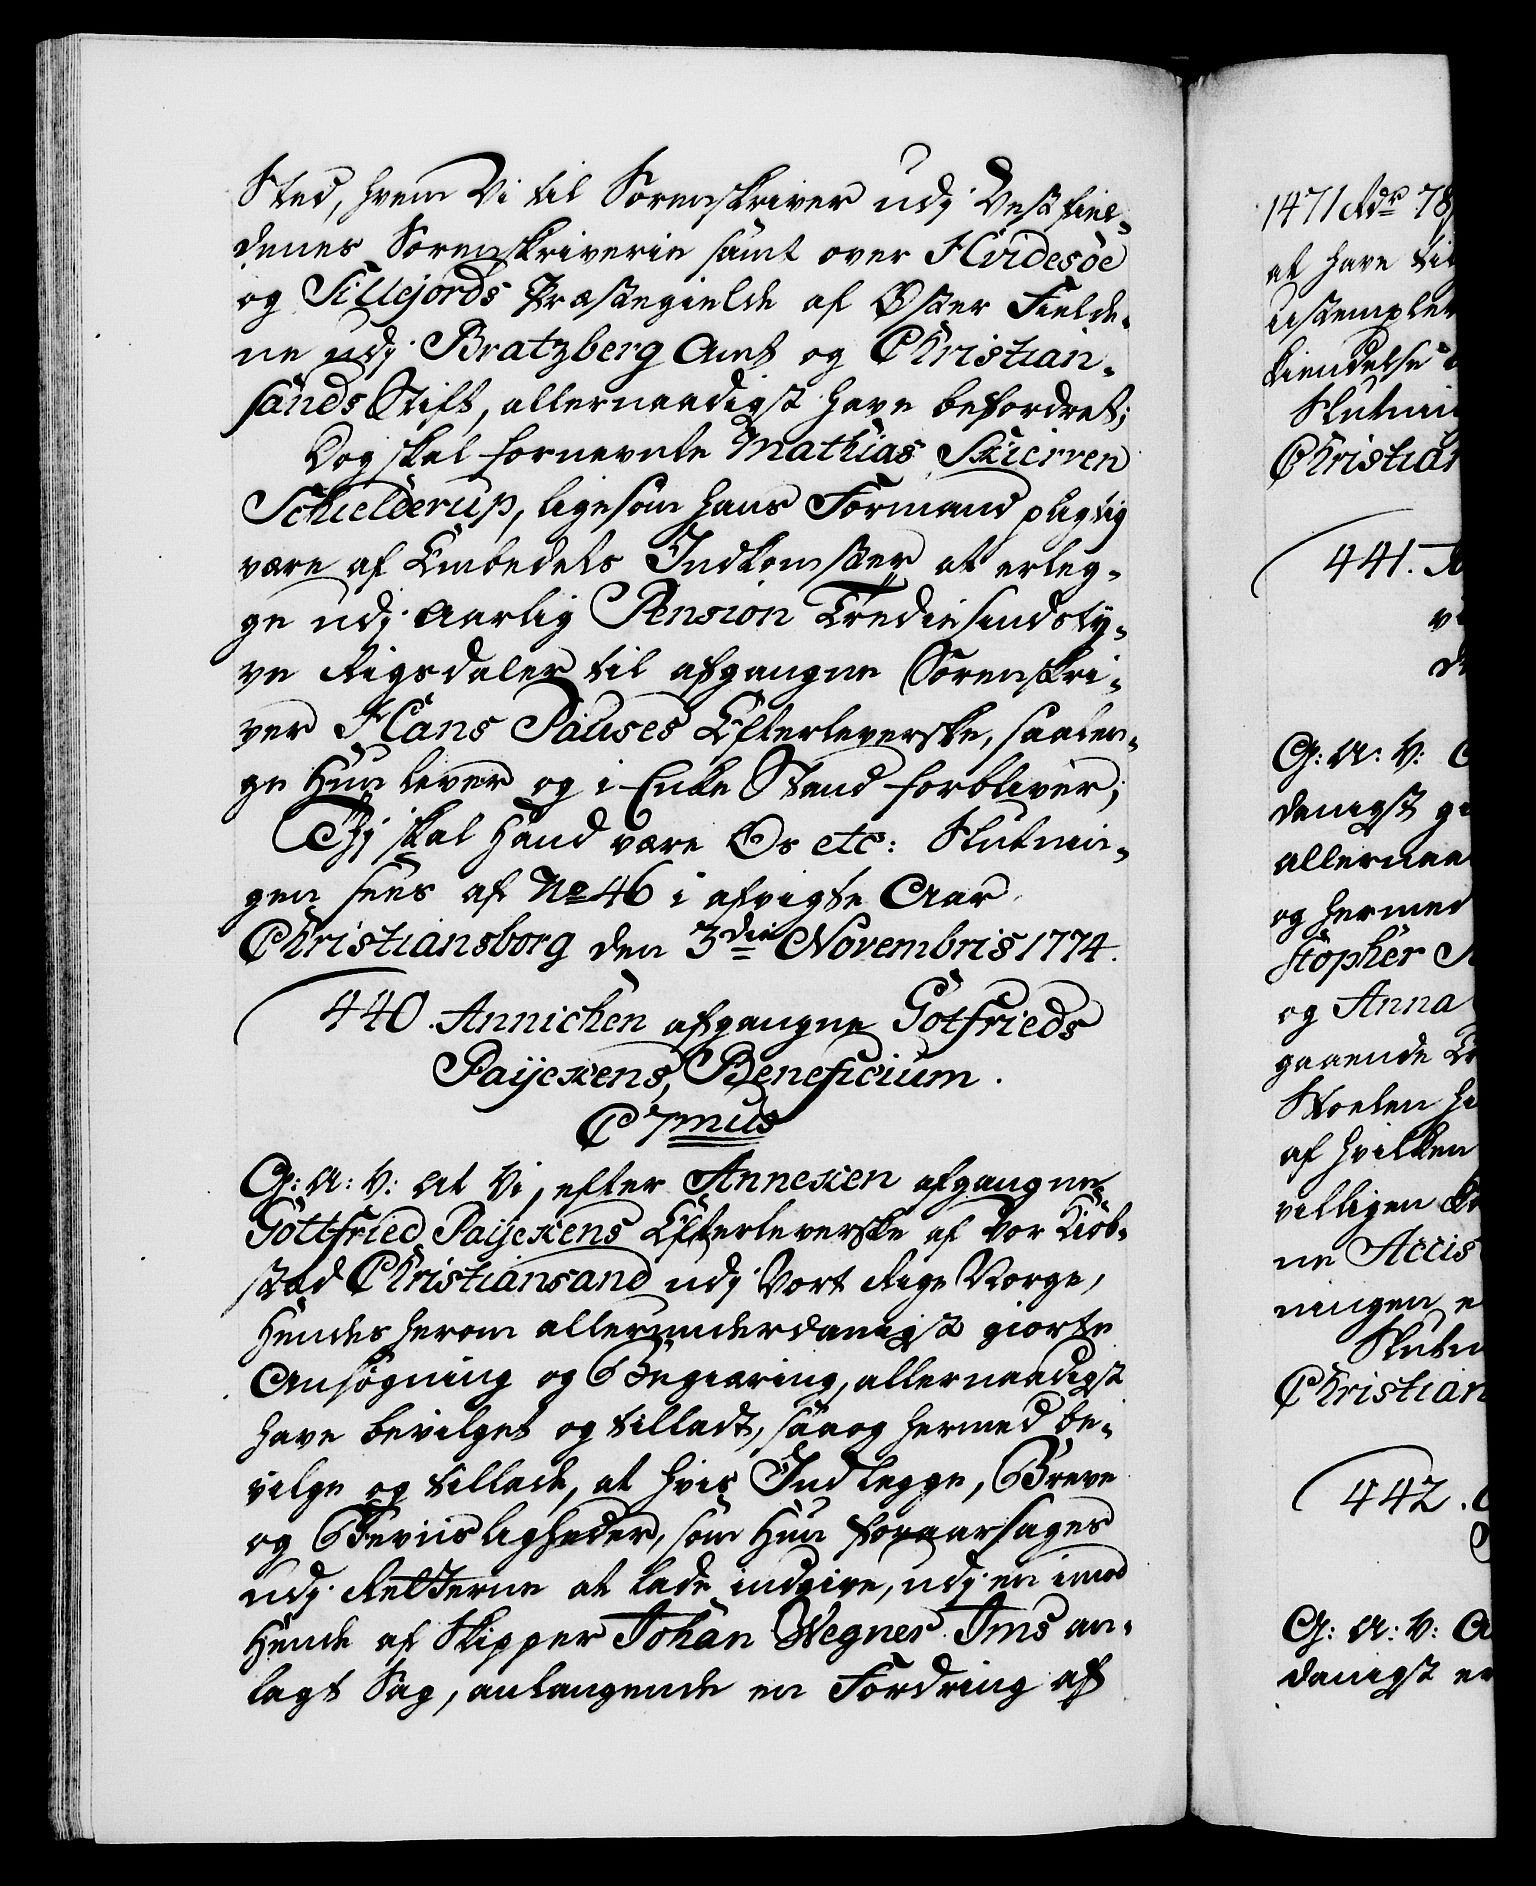 Sted, hvem Vi til Sorenskriver udj Vestfiel-
denes Sorenskriverie samt over Hvidesöe
og Sillejords Præstegielde af Øster Fielde-
ne udj Bratzberg Amt og Christian-
sands Stift, allernaadigst have befordret;
Dog skal fornevnte Mathias Skierven
Schielderup, ligesom hans Formand pligtig
være af Embedets Indkomster at erleg-
ge udj aarlig Pension Trediesindsty-
ve Rigsdaler til afgangne Sorenskri-
ver Hans Pauses Efterleverske, saalen-
ge Hun lever og i Enke Stand forbliver;
Thj skal Hand være Os etc: Slutnin-
gen sees af No 46 i afvigte Aar
Christiansborg den 3die Novembris 1774.
440. Annichen afgangne Gotfrieds
Paijckens, Beneficium.
C 7mus
G: A: V: At Vi, efter Annecken afgangne
Göttfried Paijckens Efterleverske af Vor Kiöb-
stad Christiansand udj Vort Rige Norge,
Hendes herom allerunderdanigst giorte
Ansögning og Begiæring, allernaadigst
have bevilget og tilladt, saa og hermed be-
vilge og tillade, at hvis Indlegge, Breve
og Beviisligheder, som Hun foraarsages
udj Retterne at lade indgive, udj en imod
Hende af Skipper Johan Wegner Ims an-
lagt Sag, anlangende en Fordring af
1471 Rdr 78
at have til
ustemplet
kiendelse
Slutnin
Christian
441.
G: A: V:
danigst gi
allernaa
og hermed
stopher
og Anna
gaaende
Skoelen
af hvilken
villigen
ne Accis
ningen
Slutn
Christian
442.
G: A: V:
danigst er